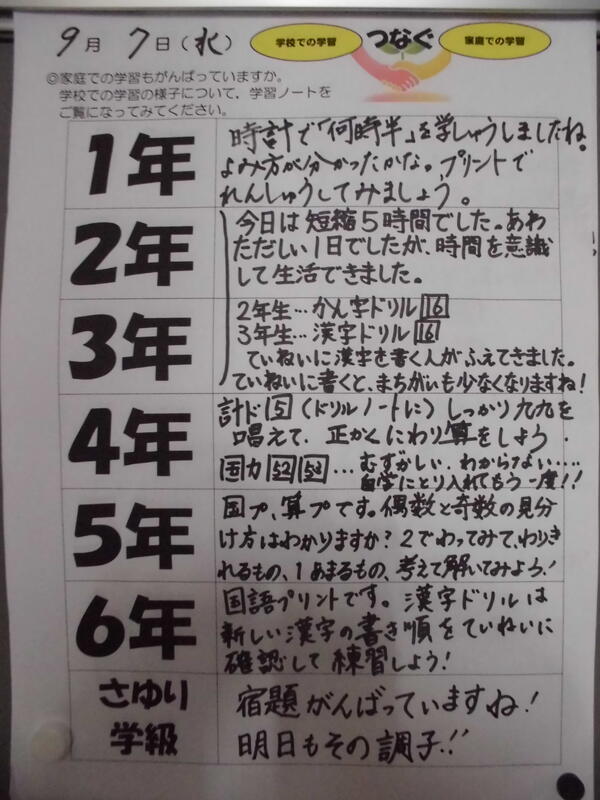 9月7日(水)
学校での学習 つなぐ 家庭での学習
◎家庭での学習もがんばっていますか。
学校での学習の様子について、学習ノートを
ご覧になってみてください。
1年
時計で「何時半」を学しゅうしましたね。
よみ方が分かったかな。プリントで
れんしゅうしてみましょう。
2年
今日は短縮5時間でした。あわ
ただしい1日でしたが、時間を意識
して生活できました。
3年
2年生…かん字ドリル16
3年生…漢字ドリル16
ていねいに漢字を書く人がふえてきました。
ていねいに書くと、まちがいも少なくなりますね!
4年
計ド5(ドリルノートに)しっかり九九を
唱えて、正かくにわり算をしよう.
国力52 53…むずかしい、わからない....
自学にとり入れてもう一度!!
5年
国プ、算プです。偶数と奇数の見分
け方はわかりますか?2でわってみて、わりき
れるもの、1あまるもの、考えて解いてみよう!
6年
国語プリントです。漢字ドリルは
新しい漢字の書き順をていねいに
確認して練習しよう!
さゆり
学級
宿題がんばっていますね!
明日もその調子!!